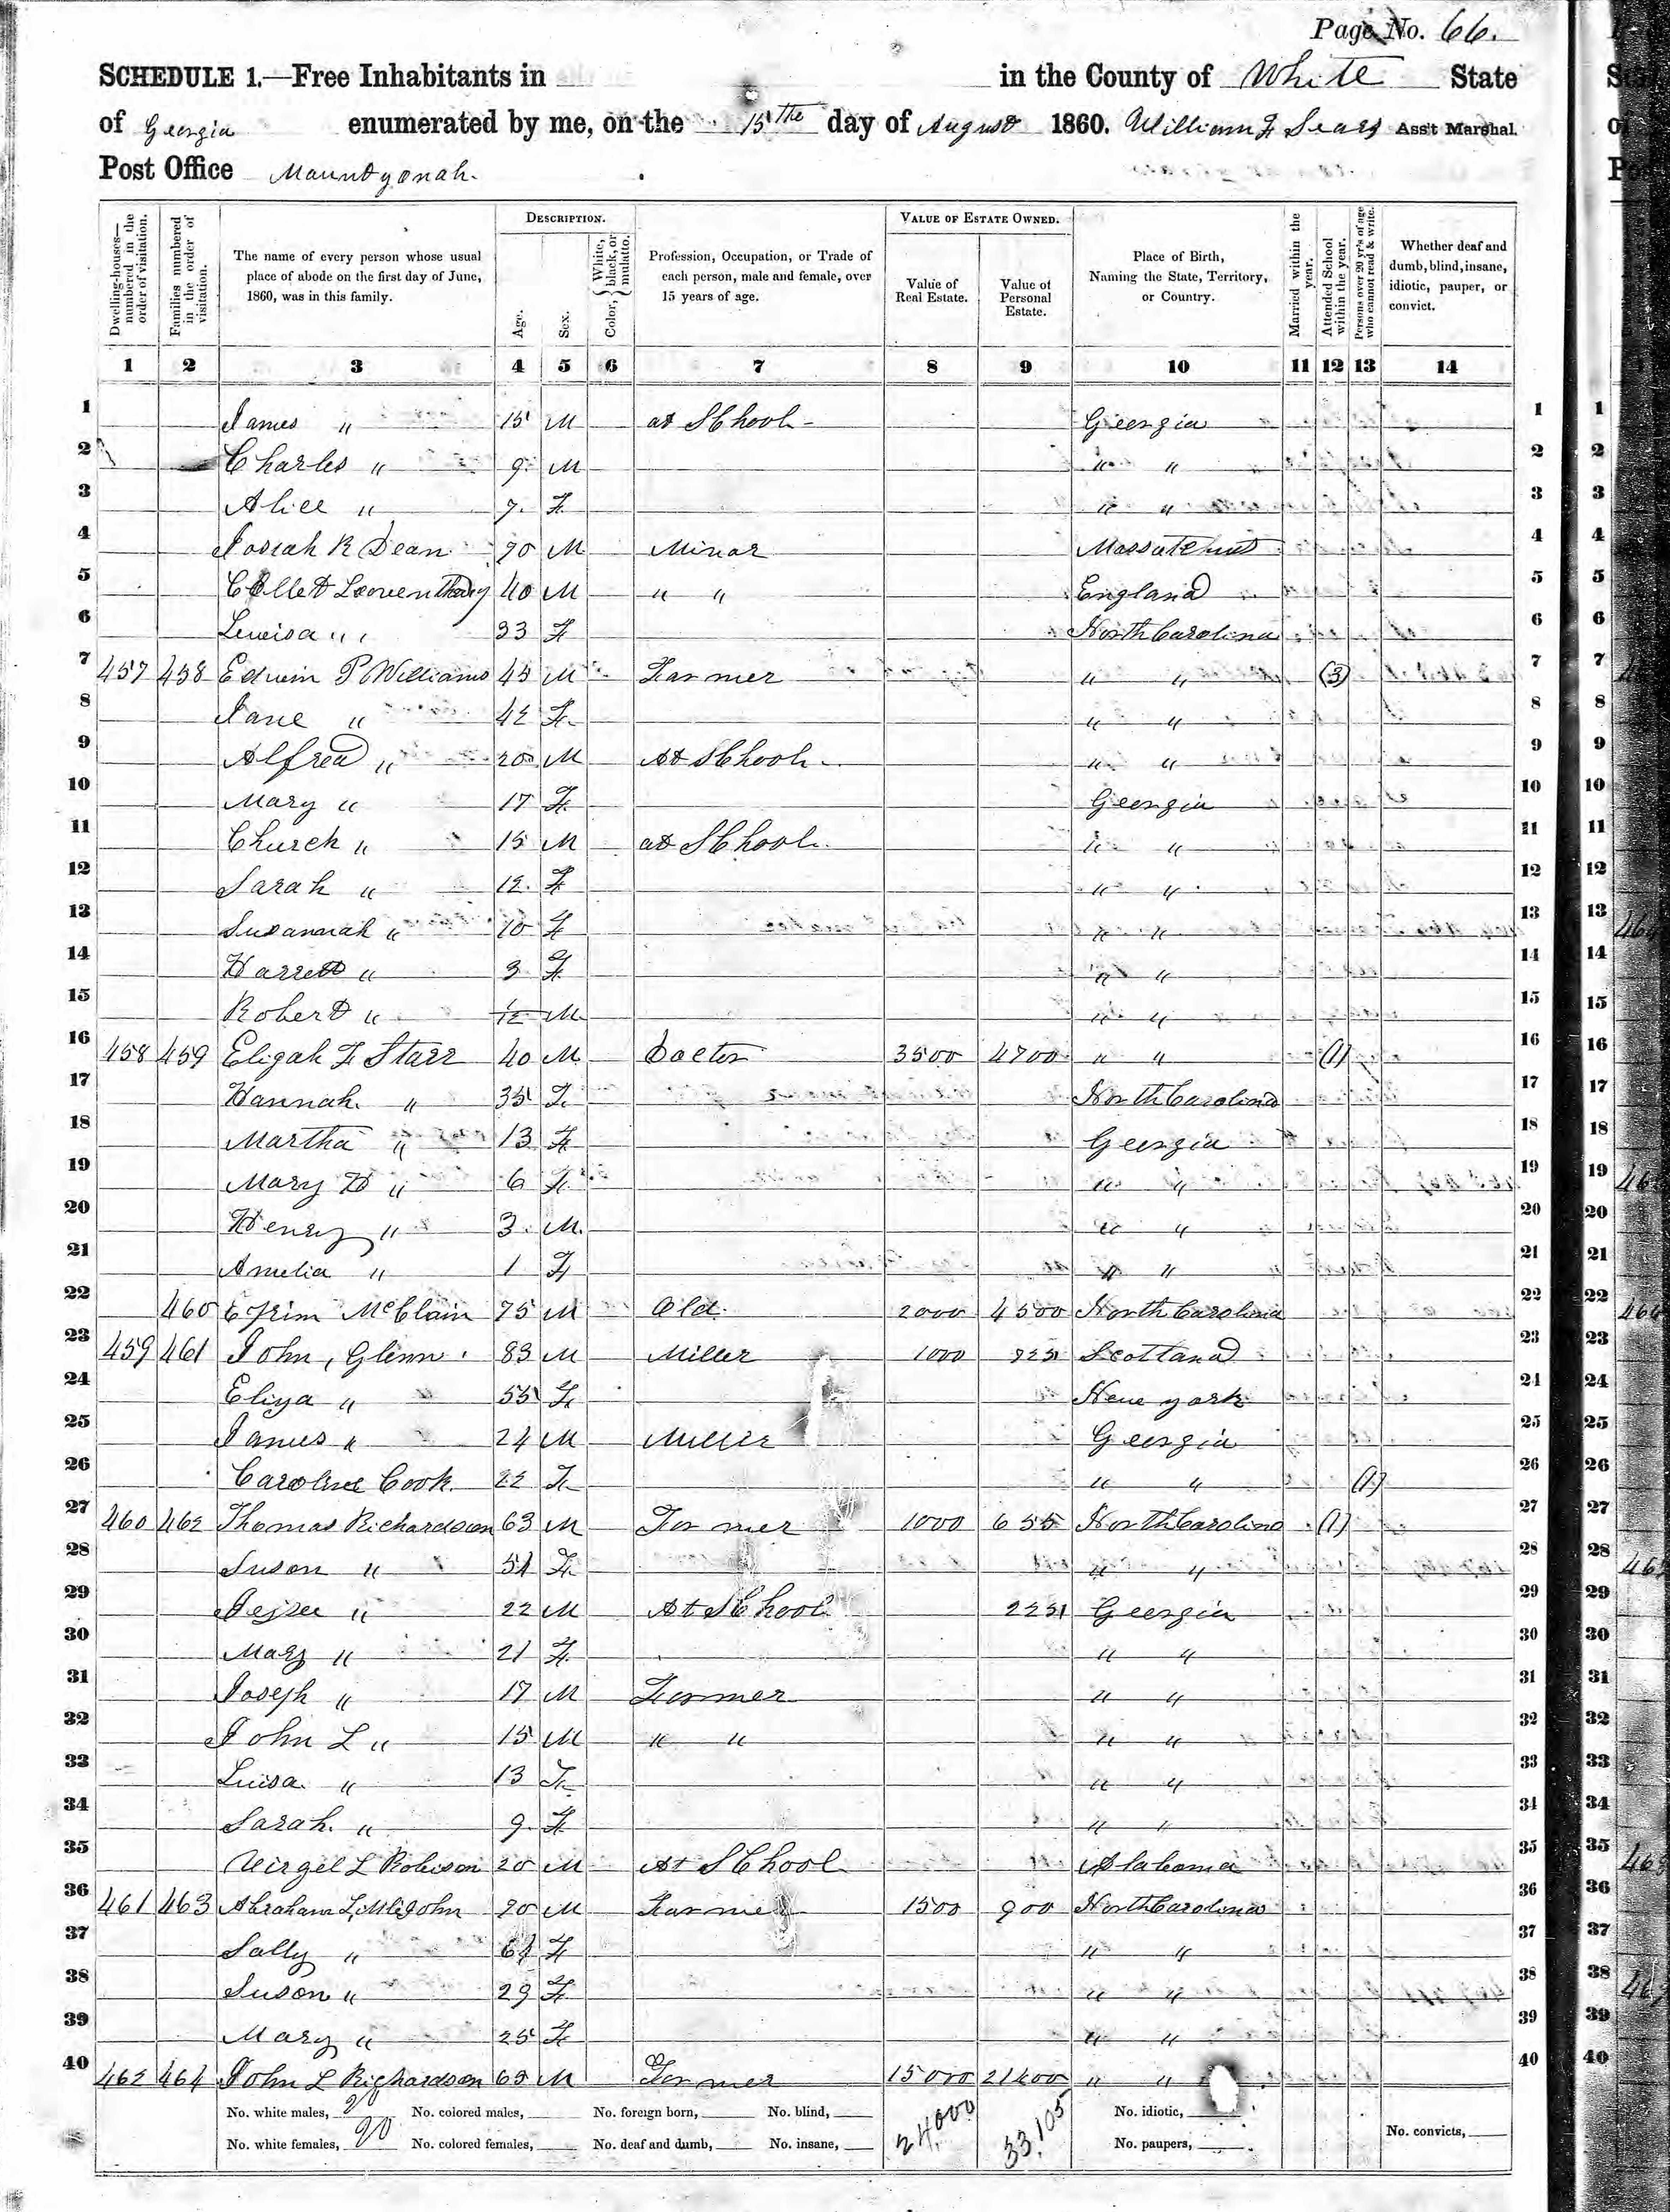 Page No. 66.
SCHEDULE 1.—Free Inhabitants in in the County of White State
of Georgia enumerated by me, on the 15the day of August 1860. William F Sears Ass't Marshal.
Post Office Mauntyonah.
Dwelling-houses—numbered in the order of visitation.
Families numbered in the order of visitation.
The name of every person whose usual place of abode on the first day of June, 1860, was in this family.
DESCRIPTION.
Age.
Sex.
Color, { White, black, or mulatto.
Profession, Occupation, or Trade of each person, male and female, over 15 years of age.
VALUE OF ESTATE OWNED.
Value of Real Estate.
Value of Personal Estate.
Place of Birth, Naming the State, Territory, or Country.
Married within the year.
Attended School within the year.
Persons over 20 yr's of age who cannot read & write.
Whether deaf and dumb, blind, insane, idiotic, pauper, or convict.
1 2 3 4 5 6 7 8 9 10 11 12 13 14
1 James " 15 M at SChool Georgia 1
2 Charles " 9 M " " 2
3 Alice " 7 F " " 3
4 Josiah R Dean M Minor 4
5 40 M " " England 5
6 Lewisa " " 33 F North Carolina 6
7 457 458 Edwin P Williams 45 M Farmer " " (3) 7
8 Jane " 42 F " " 8
9 Alfred " 20 M At SChool " " 9
10 Mary " 17 F Georgia 10
11 Church " 15 M at SChool " " 11
12 Sarah " 12 F " " 12
13 Susannah " 10 F " " 13
14 Harrett " 3 F " " 14
15 Robert " 1/12 M " " 15
16 458 459 Eligah F Starr 40 M Docter 3500 4700 " " (1) 16
17 Hannah " 35 F North Carolina 17
18 Martha " 13 F Georgia 18
19 Mary H " 6 F " " 19
20 Henry " 3 M " " 20
21 Amelia " 1 F " " 21
22 460 Efrim McClain 75 M Old 2000 4500 North Carolina 22
23 459 461 John, Glenn 83 M Miller 1000 Scotland 23
24 Eliya " 55 F New york 24
25 James " 24 M Miller Georgia 25
26 Caroline Cook 22 F " " (1) 26
27 460 462 Thomas Richardson 63 M Farmer 1000 655 North Carolina (1) 27
28 Suson " 51 F " " 28
29 22 M At SChool Georgia 29
30 Mary " 21 F " " 30
31 Joseph " 17 M Farmer " " 31
32 John L " 15 M " " " " 32
33 Luisa " 13 F " " 33
34 Sarah " 9 F " " 34
35 Virgel L Robison 20 M At SChool Alabama 35
36 461 463 Abraham L M Farmer 1500 900 North Carolina 36
37 Sally " 61 F " " 37
38 Suson " 29 F " " 38
39 Mary " 25 F " " 39
40 462 464 John L Richardson 65 M Farmer 15000 " " 40
No. white males, 20 No. colored males, No. foreign born, No. blind, 24,000 33,105 No. idiotic,
No. white females, 20 No. colored females, No. deaf and dumb, No. insane, No. paupers, No. convicts,